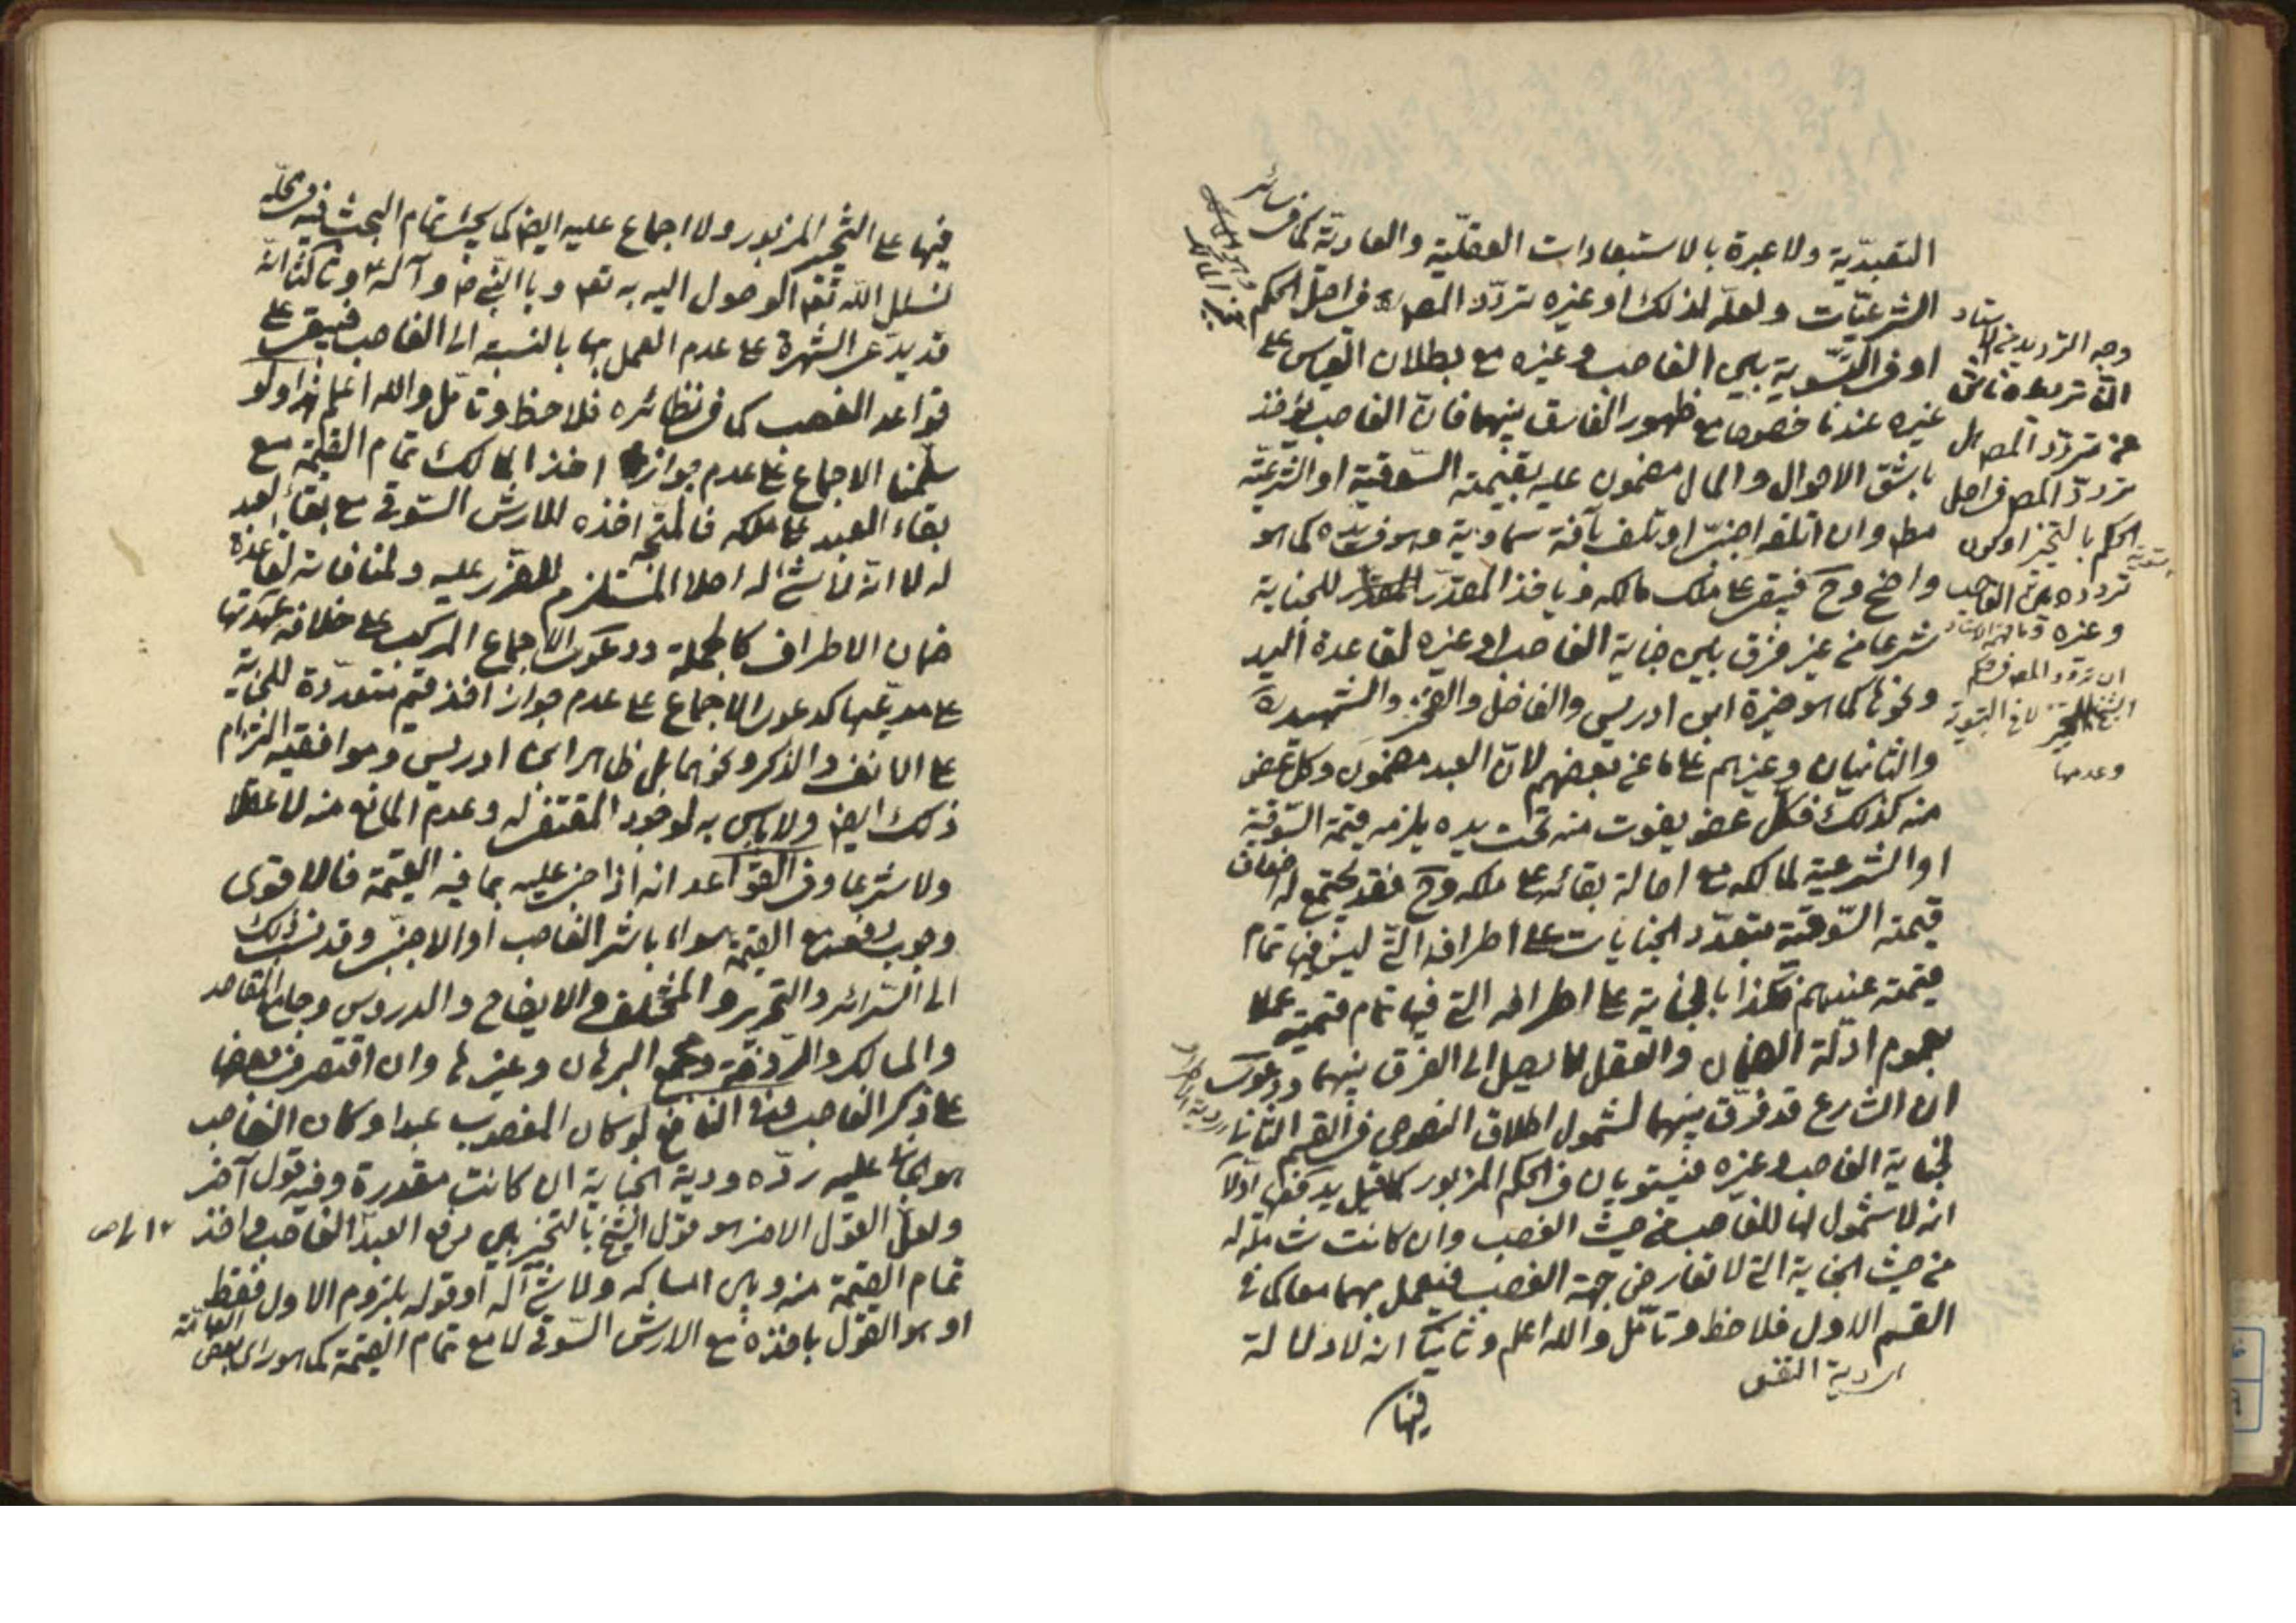 التعبديّة ولا عبرة بالاستبعادات العقليّة والعاديّة كما في سائر
الشرعيّات ولعلّه لذلك او غيره تردّد المص في اصل الحكم
او في التسوية بين الغاصب وغيره مع بطلان القياس على
غيره عندنا خصوصا مع ظهور الفارق بينهما فانّ الغاصب يؤخذ
باشقّ الاحوال والمال مضمون عليه بقيمته السّوقية او الشرعيّة
مط وان اتلفه اجنبيّ او تلف بآفة سماوية وهو في يده كما هو
واضح وح فيبقى على ملك مالكه ويأخذ المقدّر للجناية
شرعا من غير فرق بين جناية الغاصب او غيره لقاعدة اليد
ونحوها كما هو خيرة ابن ادريس والفاضل والفخر والشهيد
والثانيان وغيرهم على ما عن بعضهم لانّ العبد مضمون وكل عضو
منه كذلك فكل عضو يفوت منه تحت يده يلزمه قيمة السّوقية
او الشرعية لمالكه مع اصالة بقائه على ملكه وح فقد يجتمع له اضعاف
قيمته السّوقية بتعدّد الجنايات على اطرافه الّتي ليس فيها تمام
قيمته عندهم فكذا بالجناية على اطرافه التي فيها تمام قيمته عملا
بعموم ادلّة الضمان والعقل لا يصل الى الفرق بينهما ودعوى
ان الشارع قد فرّق بينهما لشمول اطلاق النصوص في القسم الثاني
لجناية الغاصب وغيره فيستويان في الحكم المزبور كما قيل يدفعها اوّلا
انه لا شمول لها للغاصب من حيث الغصب وان كانت شاملة له
من حيث الجناية التي لا تعارض جهة الغصب فيعمل بهما معا كما في
القسم الاول فلاحظ وتأمّل والله اعلم وثانيا انه لا دلالة
فيها
وجه الترديد في الاسناد
تردّد المص في اصل
الحكم بالتخيير او كون
تردده بين الغاصب
وغيره
ان تردد المص في حكم
وعدمها
فيها على التخيير المزبور ولا اجماع عليه ايض كما يجئ تمام البحث فيه في محلّه
نسئل الله تع الوصول اليه به تع وبالنّبي ص وآله ع وثالثا انّه
قد يدّعى الشهرة على عدم العمل بها بالنسبة الى الغاصب فيبقى على
قواعد الغصب كما في نظائره فلاحظ وتأمّل والله اعلم هذا ولو
سلّمنا الاجماع على عدم جواز اخذ المالك تمام القيمة مع
بقاء العبد على ملكه فالمتّجه اخذه للارش السّوقي مع بقاء العبد
له لا انّه لا شئ له اصلا المستلزم للضّرر عليه ولمنافاته لقاعدة
ضمان الاطراف كالجملة ودعوى الاجماع المركب على خلافه عهدتها
على مدعيها كدعوى الاجماع على عدم جواز اخذ قيم متعدّدة للجناية
على الانف والذكر ونحوهما بل ظاهر ابن ادريس وموافقيه التزام
ذلك ايض ولا باس به لوجود المقتضي له وعدم المانع منه لا عقلا
ولا شرعا وفي القواعد انه اذا جنى عليه بما فيه القيمة فالاقوى
وجوب دفعه مع القيمة سواء باشر الغاصب او الاجنبيّ وقد نسب ذلك
الى السّرائر والتحرير والمختلف والايضاح والدروس وجامع المقاصد
والمسالك والرّوضة ومجمع البرهان وغيرها وان اقتصر في بعضها
على ذكر الغاصب وفي النافع لو كان المغصوب عبدا وكان الغاصب
هو الجاني عليه ردّه ودية الجناية ان كانت مقدرة وفيه قول آخر
ولعلّ القول الاخر هو قول الشيخ بالتخيير بين دفع العبد الغاصب واخذ
تمام القيمة منه وبين امساكه ولا شئ له او قوله بلزوم الاول فقط
او هو القول باخذه مع الارش السّوقي لا مع تمام القيمة كما هو راى بعض العامّة